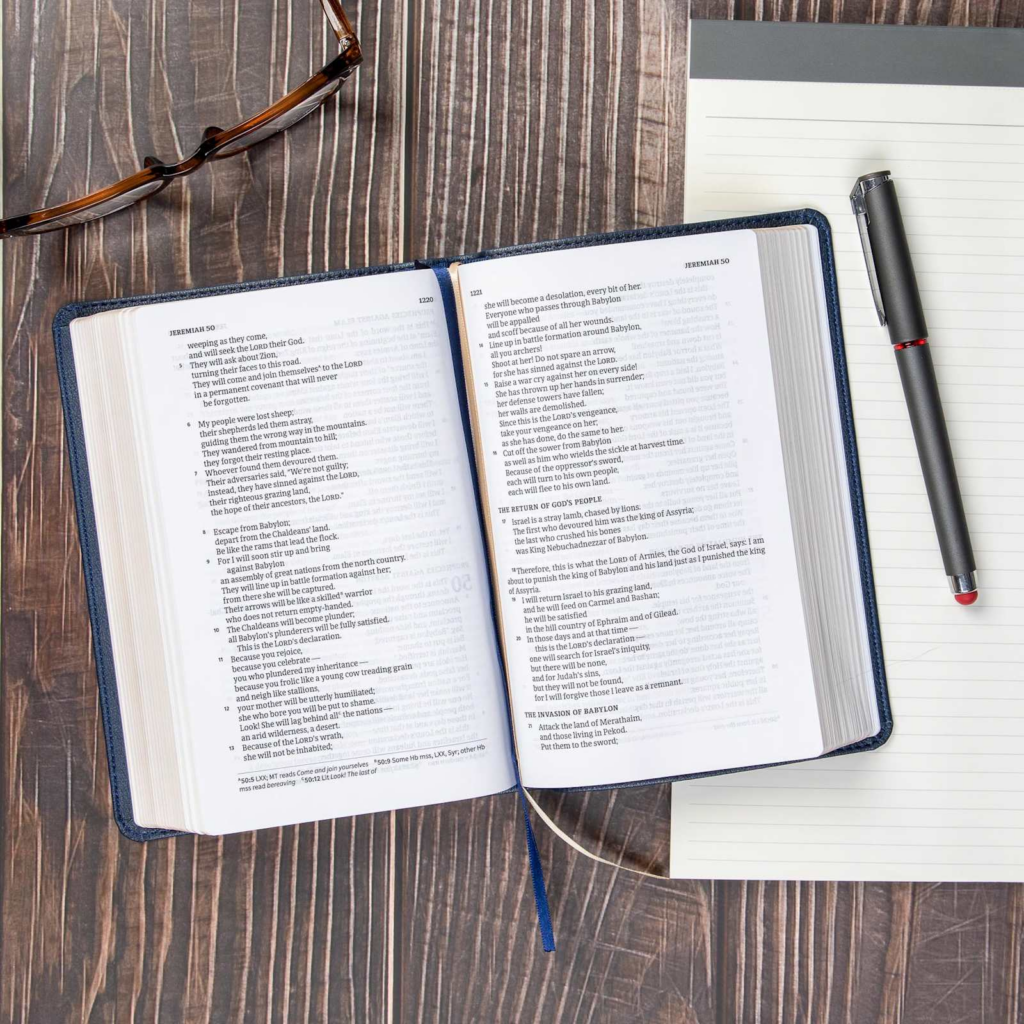 JEREMIAH 50
1220
weeping as they come,
and will seek the LORD their God.
5 They will ask about Zion,
turning their faces to this road.
They will come and join themselvesᵃ to the LORD
in a permanent covenant that will never
be forgotten.
6 My people were lost sheep;
their shepherds led them astray,
guiding them the wrong way in the mountains.
They wandered from mountain to hill;
they forgot their resting place.
7 Whoever found them devoured them.
Their adversaries said, "We're not guilty;
instead, they have sinned against the LORD,
their righteous grazing land,
the hope of their ancestors, the LORD."
8 Escape from Babylon;
depart from the Chaldeans' land.
Be like the rams that lead the flock.
9 For I will soon stir up and bring
against Babylon
an assembly of great nations from the north country.
They will line up in battle formation against her;
from there she will be captured.
Their arrows will be like a skilledᵇ warrior
who does not return empty-handed.
10 The Chaldeans will become plunder;
all Babylon's plunderers will be fully satisfied.
This is the LORD's declaration.
11 Because you rejoice,
because you celebrate —
you who plundered my inheritance —
because you frolic like a young cow treading grain
and neigh like stallions,
12 your mother will be utterly humiliated;
she who bore you will be put to shame.
Look! She will lag behind allᶜ the nations —
an arid wilderness, a desert.
13 Because of the LORD's wrath,
she will not be inhabited;
50:5 LXX; MT reads Come and join yourselves 50:9 Some Hb mss, LXX, Syr; other Hb
mss read bereaving 50:12 Lit Look! The last of
1221
JEREMIAH 50
she will become a desolation, every bit of her.
Everyone who passes through Babylon
will be appalled
and scoff because of all her wounds.
14 Line up in battle formation around Babylon,
all you archers!
Shoot at her! Do not spare an arrow,
for she has sinned against the LORD.
15 Raise a war cry against her on every side!
She has thrown up her hands in surrender;
her defense towers have fallen;
her walls are demolished.
Since this is the LORD's vengeance,
take your vengeance on her;
as she has done, do the same to her.
16 Cut off the sower from Babylon
as well as him who wields the sickle at harvest time.
Because of the oppressor's sword,
each will turn to his own people,
each will flee to his own land.
THE RETURN OF GOD'S PEOPLE
17 Israel is a stray lamb, chased by lions.
The first who devoured him was the king of Assyria;
the last who crushed his bones
was King Nebuchadnezzar of Babylon.
18 Therefore, this is what the LORD of Armies, the God of Israel, says: I am
about to punish the king of Babylon and his land just as I punished the king
of Assyria.
19 I will return Israel to his grazing land,
and he will feed on Carmel and Bashan;
he will be satisfied
in the hill country of Ephraim and of Gilead.
20 In those days and at that time —
this is the LORD's declaration —
one will search for Israel's iniquity,
but there will be none,
and for Judah's sins,
but they will not be found,
for I will forgive those I leave as a remnant.
THE INVASION OF BABYLON
21 Attack the land of Merathaim,
and those living in Pekod.
Put them to the sword;